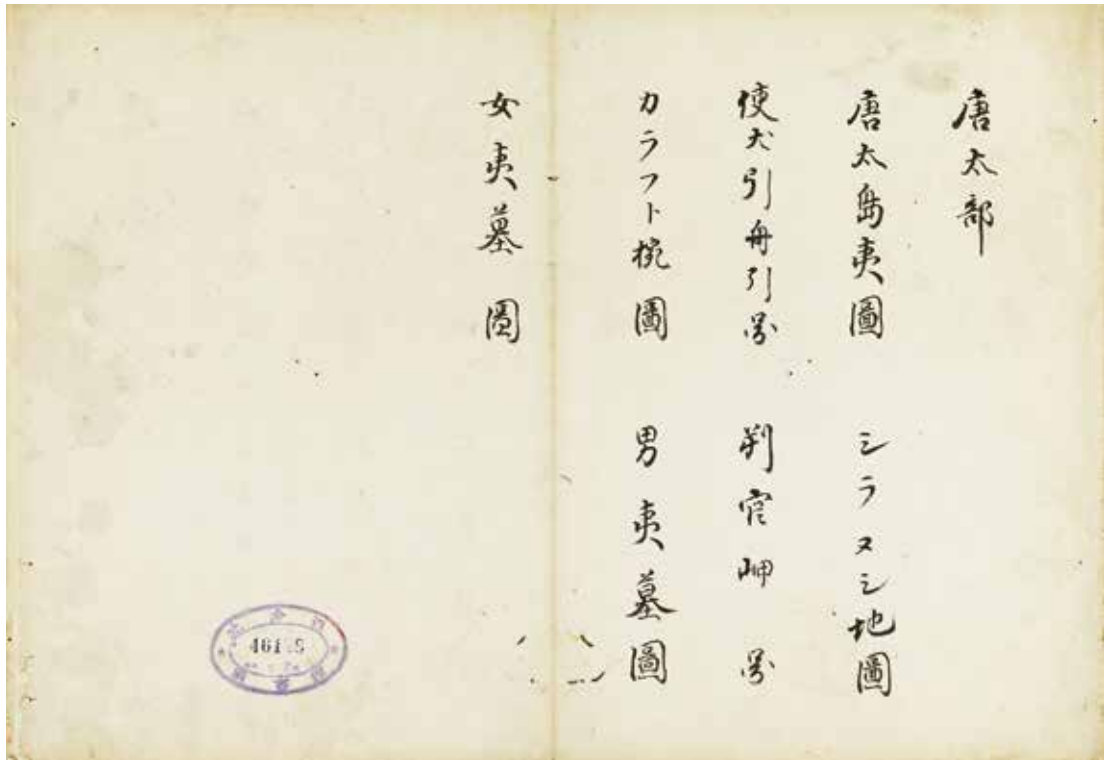 唐太部
唐太島夷圖　シラヌシ地圖
使犬引舟引圖　判官岬　圖
カラフト椀圖　男夷墓圖
女夷墓圖